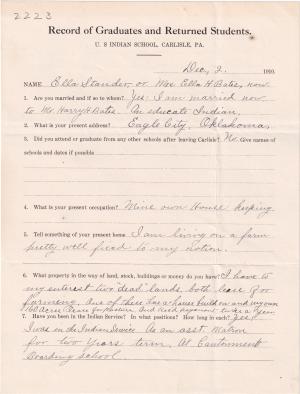 2223
Record of Graduates and Returned Students.
U. S INDIAN SCHOOL, CARLISLE, PA.
Dec, 2. 1910.
NAME Ella Stander, or Mrs Ella H Bates, now.
1. Are you married and if so to whom? Yes. I am married now
to Mr. Harry H Bates. An educate Indian,
2. What is your present address? Eagle City, Oklahoma,
3. Did you attend or graduate from any other schools after leaving Carlisle? No. Give names of
schools and dates if possible
4. What is your present occupation? Mine own House keeping
5. Tell something of your present home. I am living on a farm
pretty well fixed to my notion.
6. What property in the way of land, stock, buildings or money do you have? I have to
my interest two "dead" lands, both lease for
farming. One of these has a house build on and my own
160 Acres lease for pasture and
7. Have you been in the Indian Service? In what positions? How long in each? Yes,
I was in the Indian Service. As an asst Matron
for two Years term. At Cantonment
Boarding School